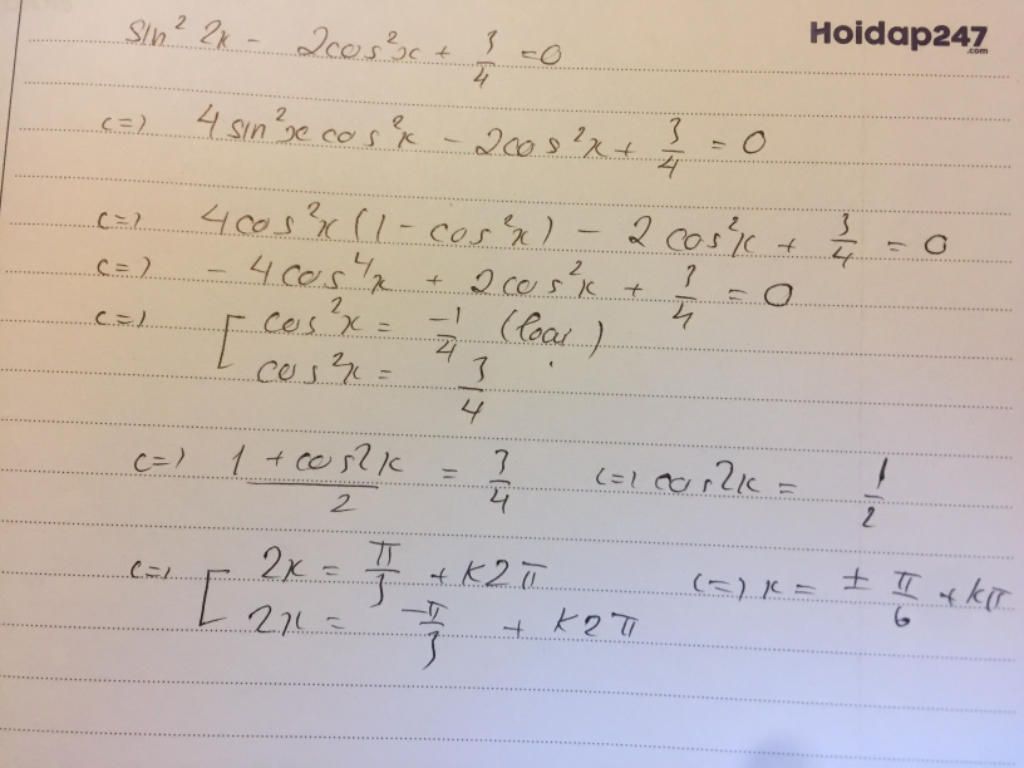 Hoidap247
.com
sin² 2x - 2cos²x + 3/4 = 0
<=> 4 sin²x cos²x - 2cos²x + 3/4 = 0
<=> 4cos²x (1 - cos²x) - 2cos²x + 3/4 = 0
<=> - 4cos⁴x + 2cos²x + 3/4 = 0
<=> [ cos²x = -1/4 (loại)
cos²x = 3/4
<=> (1 + cos2x)/2 = 3/4 <=> cos2x = 1/2
<=> [ 2x = π/3 + k2π <=> x = ± π/6 + kπ
2x = -π/3 + k2π